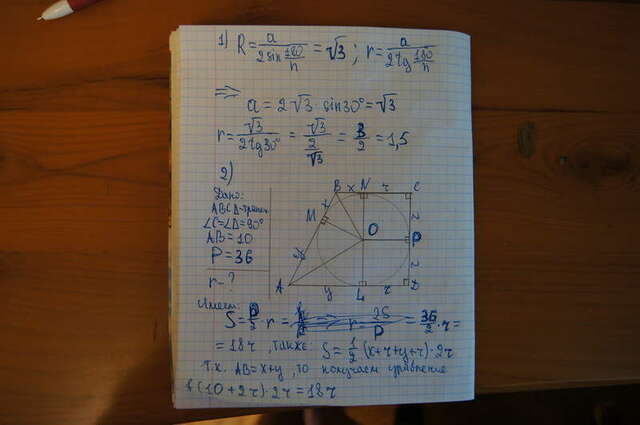 1) R = a / (2 sin 180/n) = √3 ; r = a / (2 tg 180/n)
=>
a = 2√3 · sin 30° = √3
r = √3 / (2 tg 30°) = √3 / (2/√3) = 3/2 = 1,5
2)
Дано:
ABCD-трапец.
∠C=∠D=90°
AB = 10
P = 36
r - ?
B x N r C
x M
O r P
x r
A y L r D
Имеем:
S = P/2 r = = 36/2 · r =
= 18r , также: S = 1/2 (x+r+y+r) · 2r
т.к. AB = x+y , то получаем уравнение
(10 + 2r) · 2r = 18r